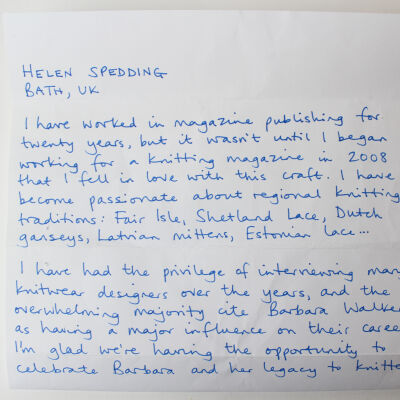 HELEN SPEDDING
BATH, UK
I have worked in magazine publishing for
twenty years, but it wasn't until I began
working for a knitting magazine in 2008
that I fell in love with this craft. I have
become passionate about regional knitting
traditions: Fair Isle, Shetland Lace, Dutch
ganseys, Latvian mittens, Estonian lace...
I have had the privilege of interviewing many
knitwear designers over the years, and the
overwhelming majority cite Barbara Walker
as having a major influence on their caree
I'm glad we're having the opportunity to
celebrate Barbara and her legacy to knitte